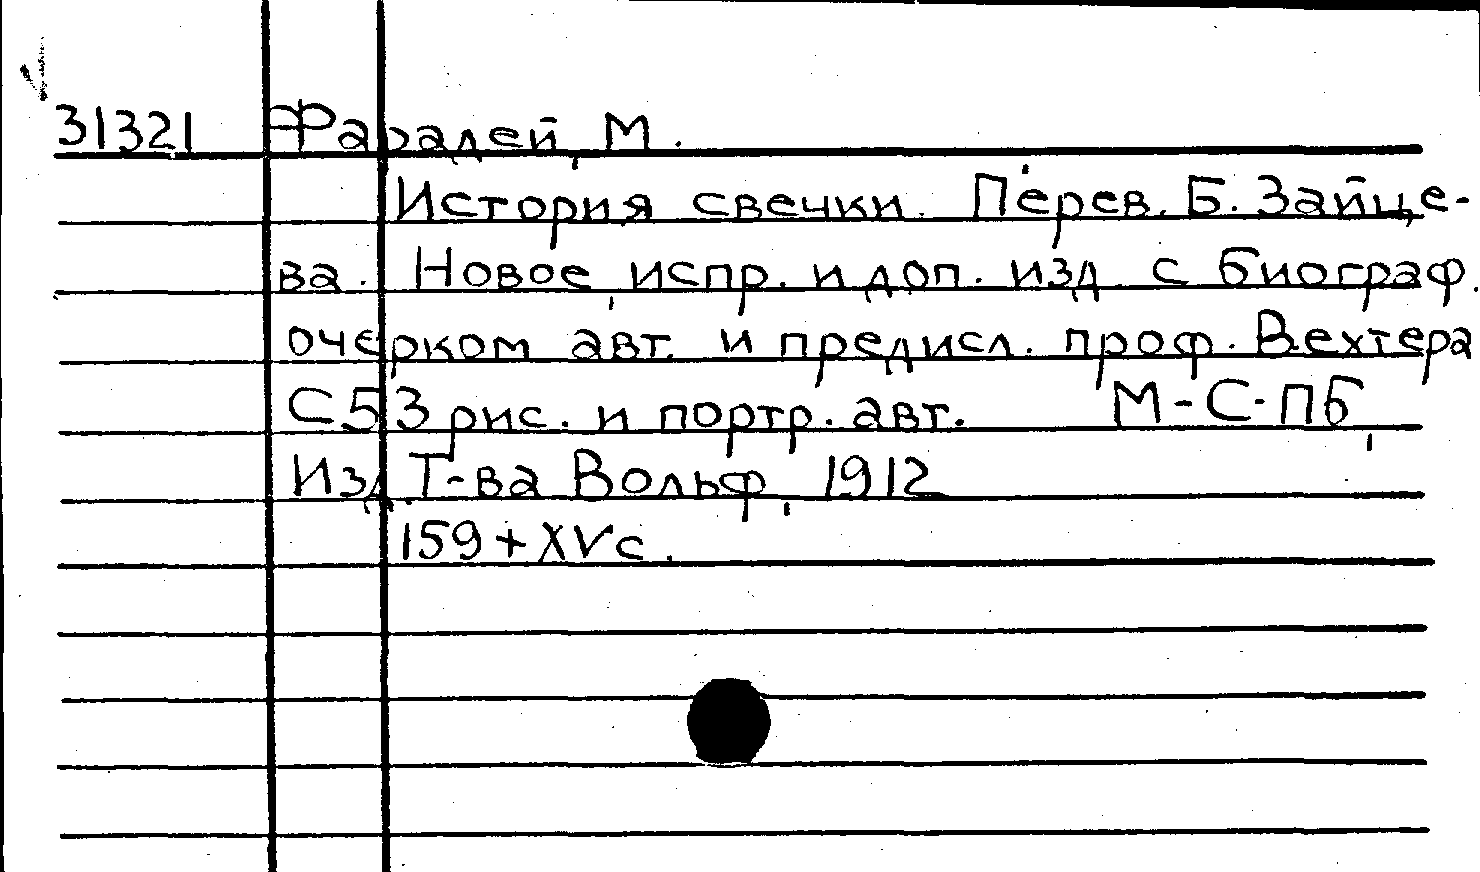 31321 Фарадей, М.
История свечки. Перев. Б. Зайце-
ва. Новое, испр. и доп. изд. с биограф.
очерком авт. и предисл. проф. В.ехтера
С 53 рис. и портр. авт. М-С-Пб,
Изд. Т-ва Вольф, 1912
159+XV с.